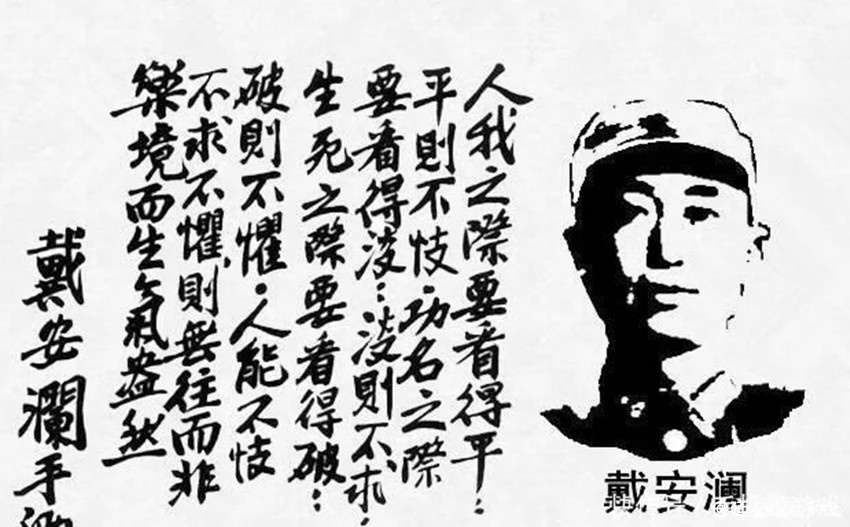 人我之際要看得平：
平則不忮．功名之際
要看得淡：淡則不求．
生死之際要看得破：
破則不懼．人能不忮
不求不懼，則無往而非
樂境而生氣盎然
戴安瀾手
戴安澜